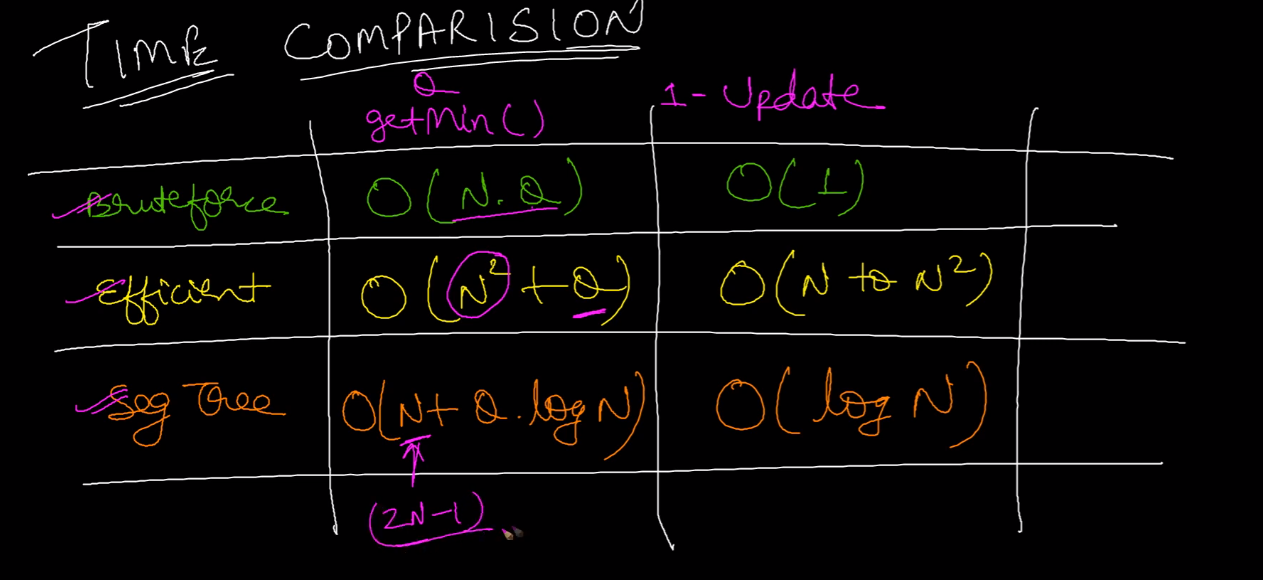 TIME COMPARISION
Q
getMin() 1- Update
Bruteforce O(N.Q) O(1)
Efficient O(N²+Q) O(N to N²)
Seg Tree O(N+Q.logN) O(log N)
(2N-1)